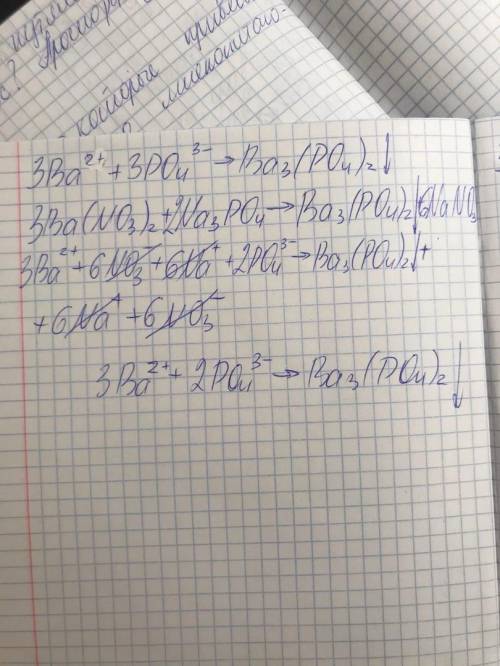 с? Простор
которые привел
3Ba²⁺ + 3PO₄³⁻ → Ba₃(PO₄)₂↓
3Ba(NO₃)₂ + 2Na₃PO₄ → Ba₃(PO₄)₂↓ + 6NaNO₃
3Ba²⁺ + 6NO₃⁻ + 6Na⁺ + 2PO₄³⁻ → Ba₃(PO₄)₂↓ +
+ 6Na⁺ + 6NO₃⁻
3Ba²⁺ + 2PO₄³⁻ → Ba₃(PO₄)₂↓